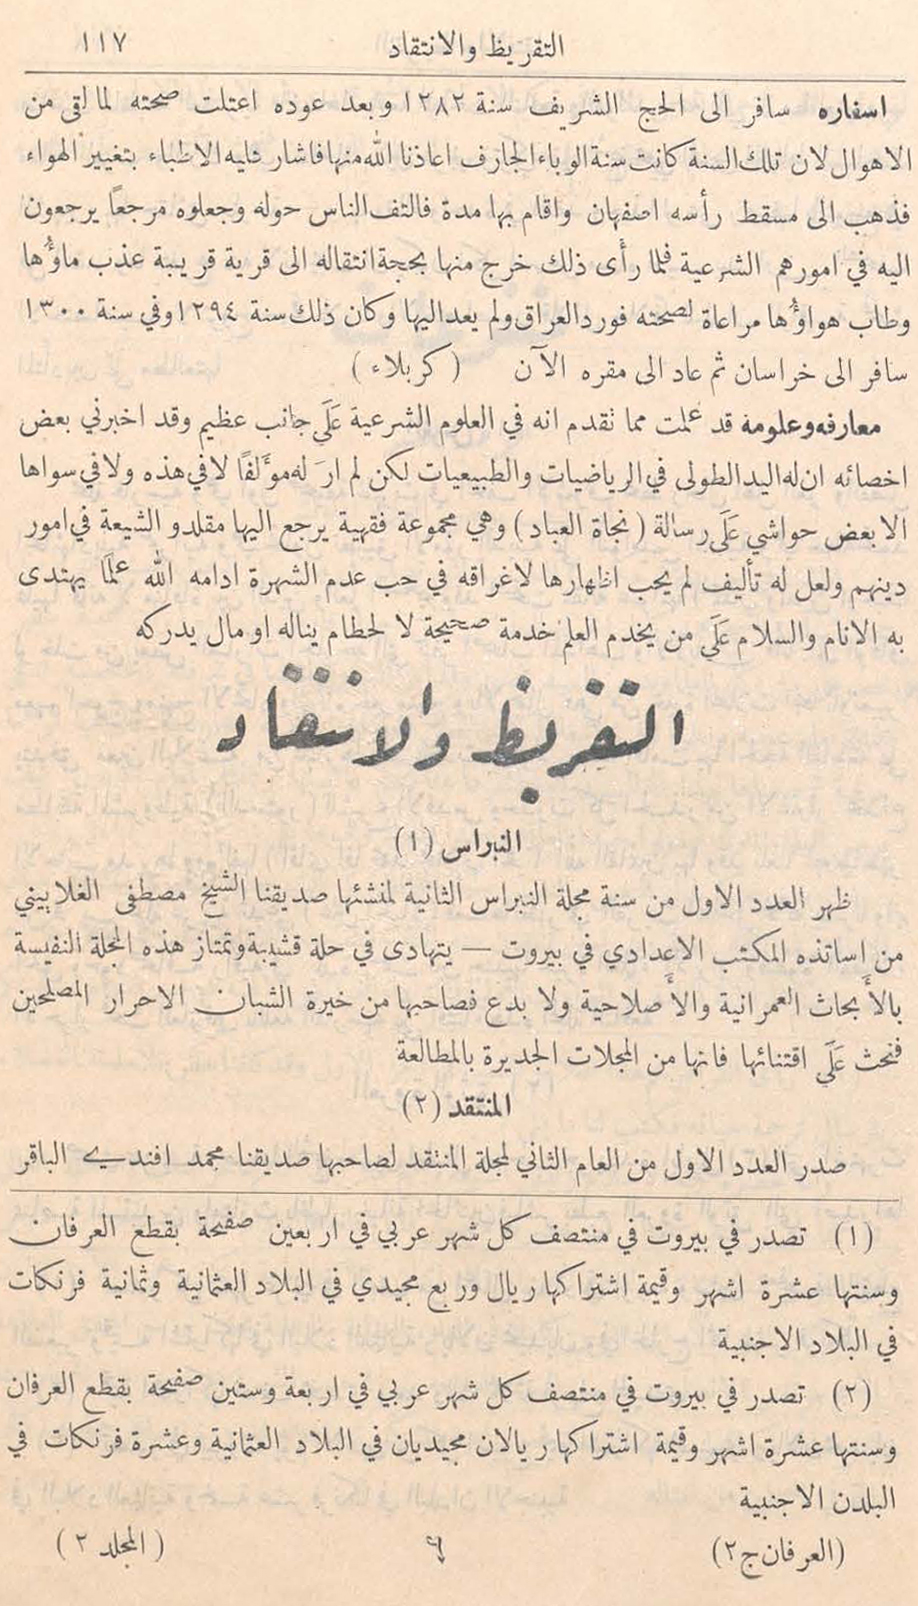 التقريظ والانتقاد ١١٧
اسفاره سافر الى الحج الشريف سنة ١٢٨٢ وبعد عوده اعتلت صحته لما لقي من
الاهوال لان تلك السنة كانت سنة الوباء الجارف اعاذنا الله منها فاشار عليه الاطباء بتغيير الهواء
فذهب الى مسقط رأسه اصفهان واقام بها مدة فالتف الناس حوله وجعلوه مرجعاً يرجعون
اليه في امورهم الشرعية فلما رأى ذلك خرج منها بحجة انتقاله الى قرية قريبة عذب ماؤُها
وطاب هواؤُها مراعاة لصحته فورد العراق ولم يعد اليها وكان ذلك سنة ١٢٩٤ وفي سنة ١٣٠٠
سافر الى خراسان ثم عاد الى مقره الآن ( كربلاء )
معارفه وعلومه قد علمت مما تقدم انه في العلوم الشرعية عَلَى جانب عظيم وقد اخبرني بعض
اخصائه ان له اليد الطولى في الرياضيات والطبيعيات لكن لم ارَ له مؤَلفًا لا في هذه ولا في سواها
الا بعض حواشي عَلَى رسالة ( نجاة العباد ) وهي مجموعة فقهية يرجع اليها مقلدو الشيعة في امور
دينهم ولعل له تأليف لم يحب اظهارها لاغراقه في حب عدم الشهرة ادامه الله علمًا يهتدى
به الانام والسلام عَلَى من يخدم العلم خدمة صحيحة لا لحطام يناله او مال يدركه
التقريظ والانتقاد
النبراس (١)
ظهر العدد الاول من سنة مجلة النبراس الثانية لمنشئها صديقنا الشيخ مصطفى الغلاييني
من اساتذه المكتب الاعدادي في بيروت — يتهادى في حلة قشيبة وتمتاز هذه المجلة النفيسة
بالأَبحاث العمرانية والأَصلاحية ولا بدع فصاحبها من خيرة الشبان الاحرار المصلحين
فنحث عَلَى اقتنائها فانها من المجلات الجديرة بالمطالعة
المنتقد (٢)
صدر العدد الاول من العام الثاني لمجلة المنتقد لصاحبها صديقنا محمد افندي الباقر
(١) تصدر في بيروت في منتصف كل شهر عربي في اربعين صفحة بقطع العرفان
وسنتها عشرة اشهر وقيمة اشتراكها ريال وربع مجيدي في البلاد العثمانية وثمانية فرنكات
في البلاد الاجنبية
(٢) تصدر في بيروت في منتصف كل شهر عربي في اربعة وستين صفحة بقطع العرفان
وسنتها عشرة اشهر وقيمة اشتراكها ريالان مجيديان في البلاد العثمانية وعشرة فرنكات في
البلدن الاجنبية
(العرفان ج٢) ٦ ( المجلد ٢ )